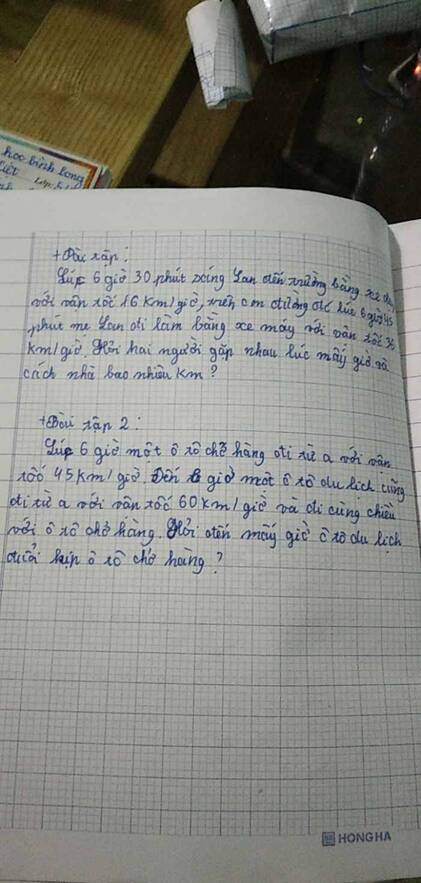 học bình long
+ Bài tập :
Lúc 6 giờ 30 phút sáng Lan đến trường bằng xe đạp
với vận tốc 16 km/giờ, trên con đường đó lúc 6 giờ 45
phút mẹ Lan đi làm bằng xe máy với vận tốc 36
km/giờ. Hỏi hai người gặp nhau lúc mấy giờ và
cách nhà bao nhiêu km ?
+ Bài tập 2 :
Lúc 6 giờ một ô tô chở hàng đi từ a với vận
tốc 45 km/giờ. Đến 8 giờ một ô tô du lịch cũng
đi từ a với vận tốc 60 km/giờ và đi cùng chiều
với ô tô chở hàng. Hỏi đến mấy giờ ô tô du lịch
đuổi kịp ô tô chở hàng ?
HONG HA